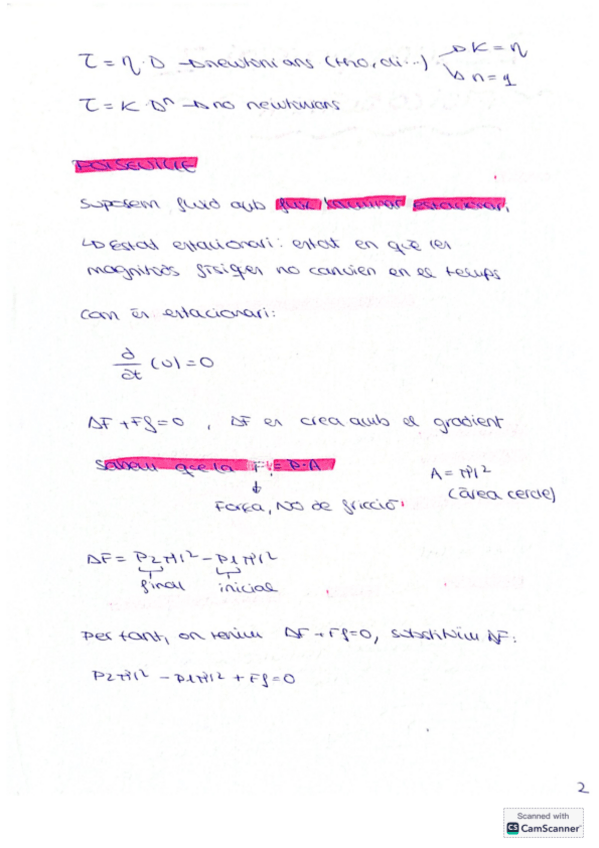 τ = η · D → newtonians (H2O, oli...) → K = η
→ n = 1
τ = K · Dⁿ → no newtonians
POISEUILLE
Suposem fluid amb flux laminar estacionari,
↳ Estat estacionari: estat en què les
magnituds físiques no canvien en el temps
Com és estacionari:
d/dt (v) = 0
ΔF + Ff = 0 , ΔF es crea amb el gradient
Sabem que la F = P·A
A = πr²
(àrea cercle)
Força, NO de fricció
ΔF = P2πr² - P1πr²
final inicial
Per tant, on teníem ΔF + Ff = 0, substituïm ΔF:
P2πr² - P1πr² + Ff = 0
2
Scanned with
CS CamScanner